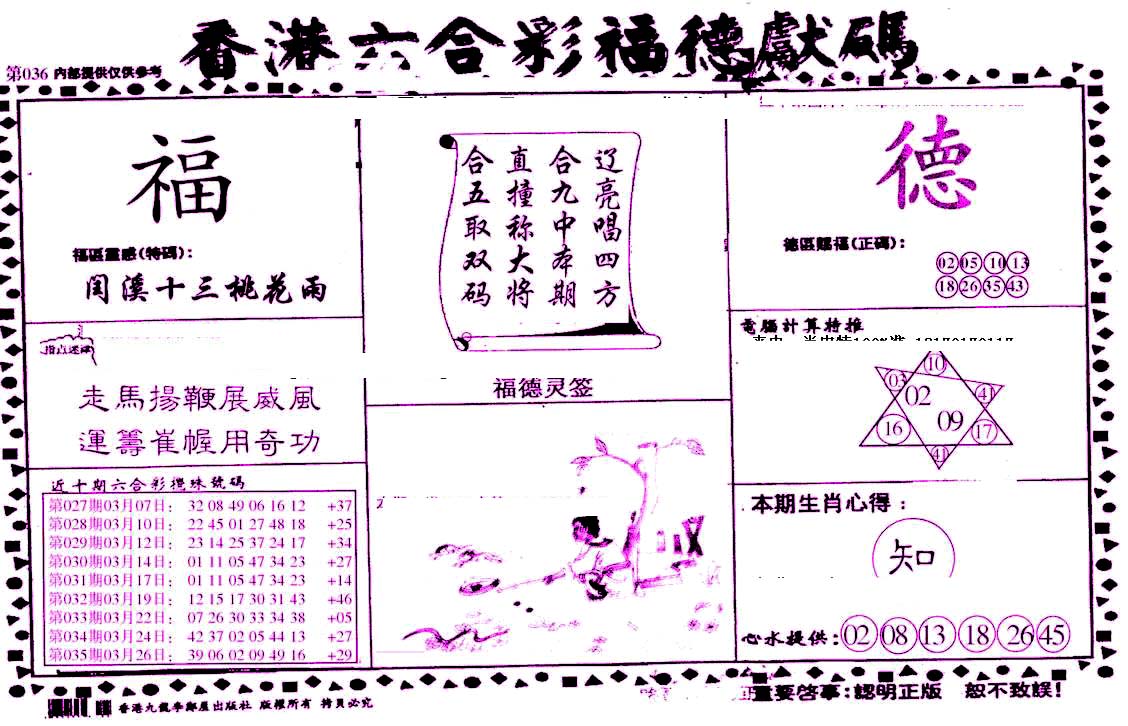 香港六合彩福德獻碼
第036 内部提供仅供参考
福
福區靈感(特碼):
闰溪十三桃花雨
指点迷津
走馬揚鞭展威風
運籌崔幄用奇功
近十期六合彩攪珠號碼
第027期03月07日: 32 08 49 06 16 12 +37
第028期03月10日: 22 45 01 27 48 18 +25
第029期03月12日: 23 14 25 37 24 17 +34
第030期03月14日: 01 11 05 47 34 23 +27
第031期03月17日: 01 11 05 47 34 23 +14
第032期03月19日: 12 15 17 30 31 43 +46
第033期03月22日: 07 26 30 33 34 38 +05
第034期03月24日: 42 37 02 05 44 13 +27
第035期03月26日: 39 06 02 09 49 16 +29
辽亮唱四方
合九中本期
直撞称大将
合五取双码
福德灵签
德
德區賜福(正碼):
02 05 10 13
18 26 35 43
電腦計算特推
10
03
41
02
09
16
17
41
本期生肖心得:
知
心水提供: 02 08 13 18 26 45
香港九龍李鄭屋出版社 版權所有 拷貝必究
重要啓事:認明正版 恕不致誤!